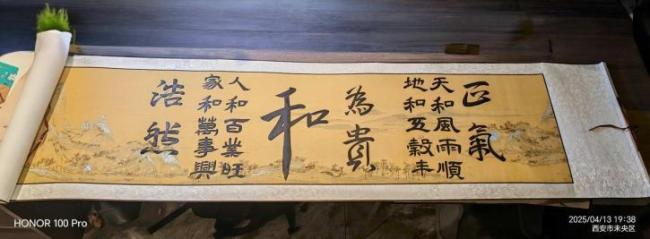 浩然
人和百業旺
家和萬事興
和
為貴
天和風雨順
地和五穀丰
正氣
HONOR 100 Pro
2025/04/13 19:38
西安市未央区